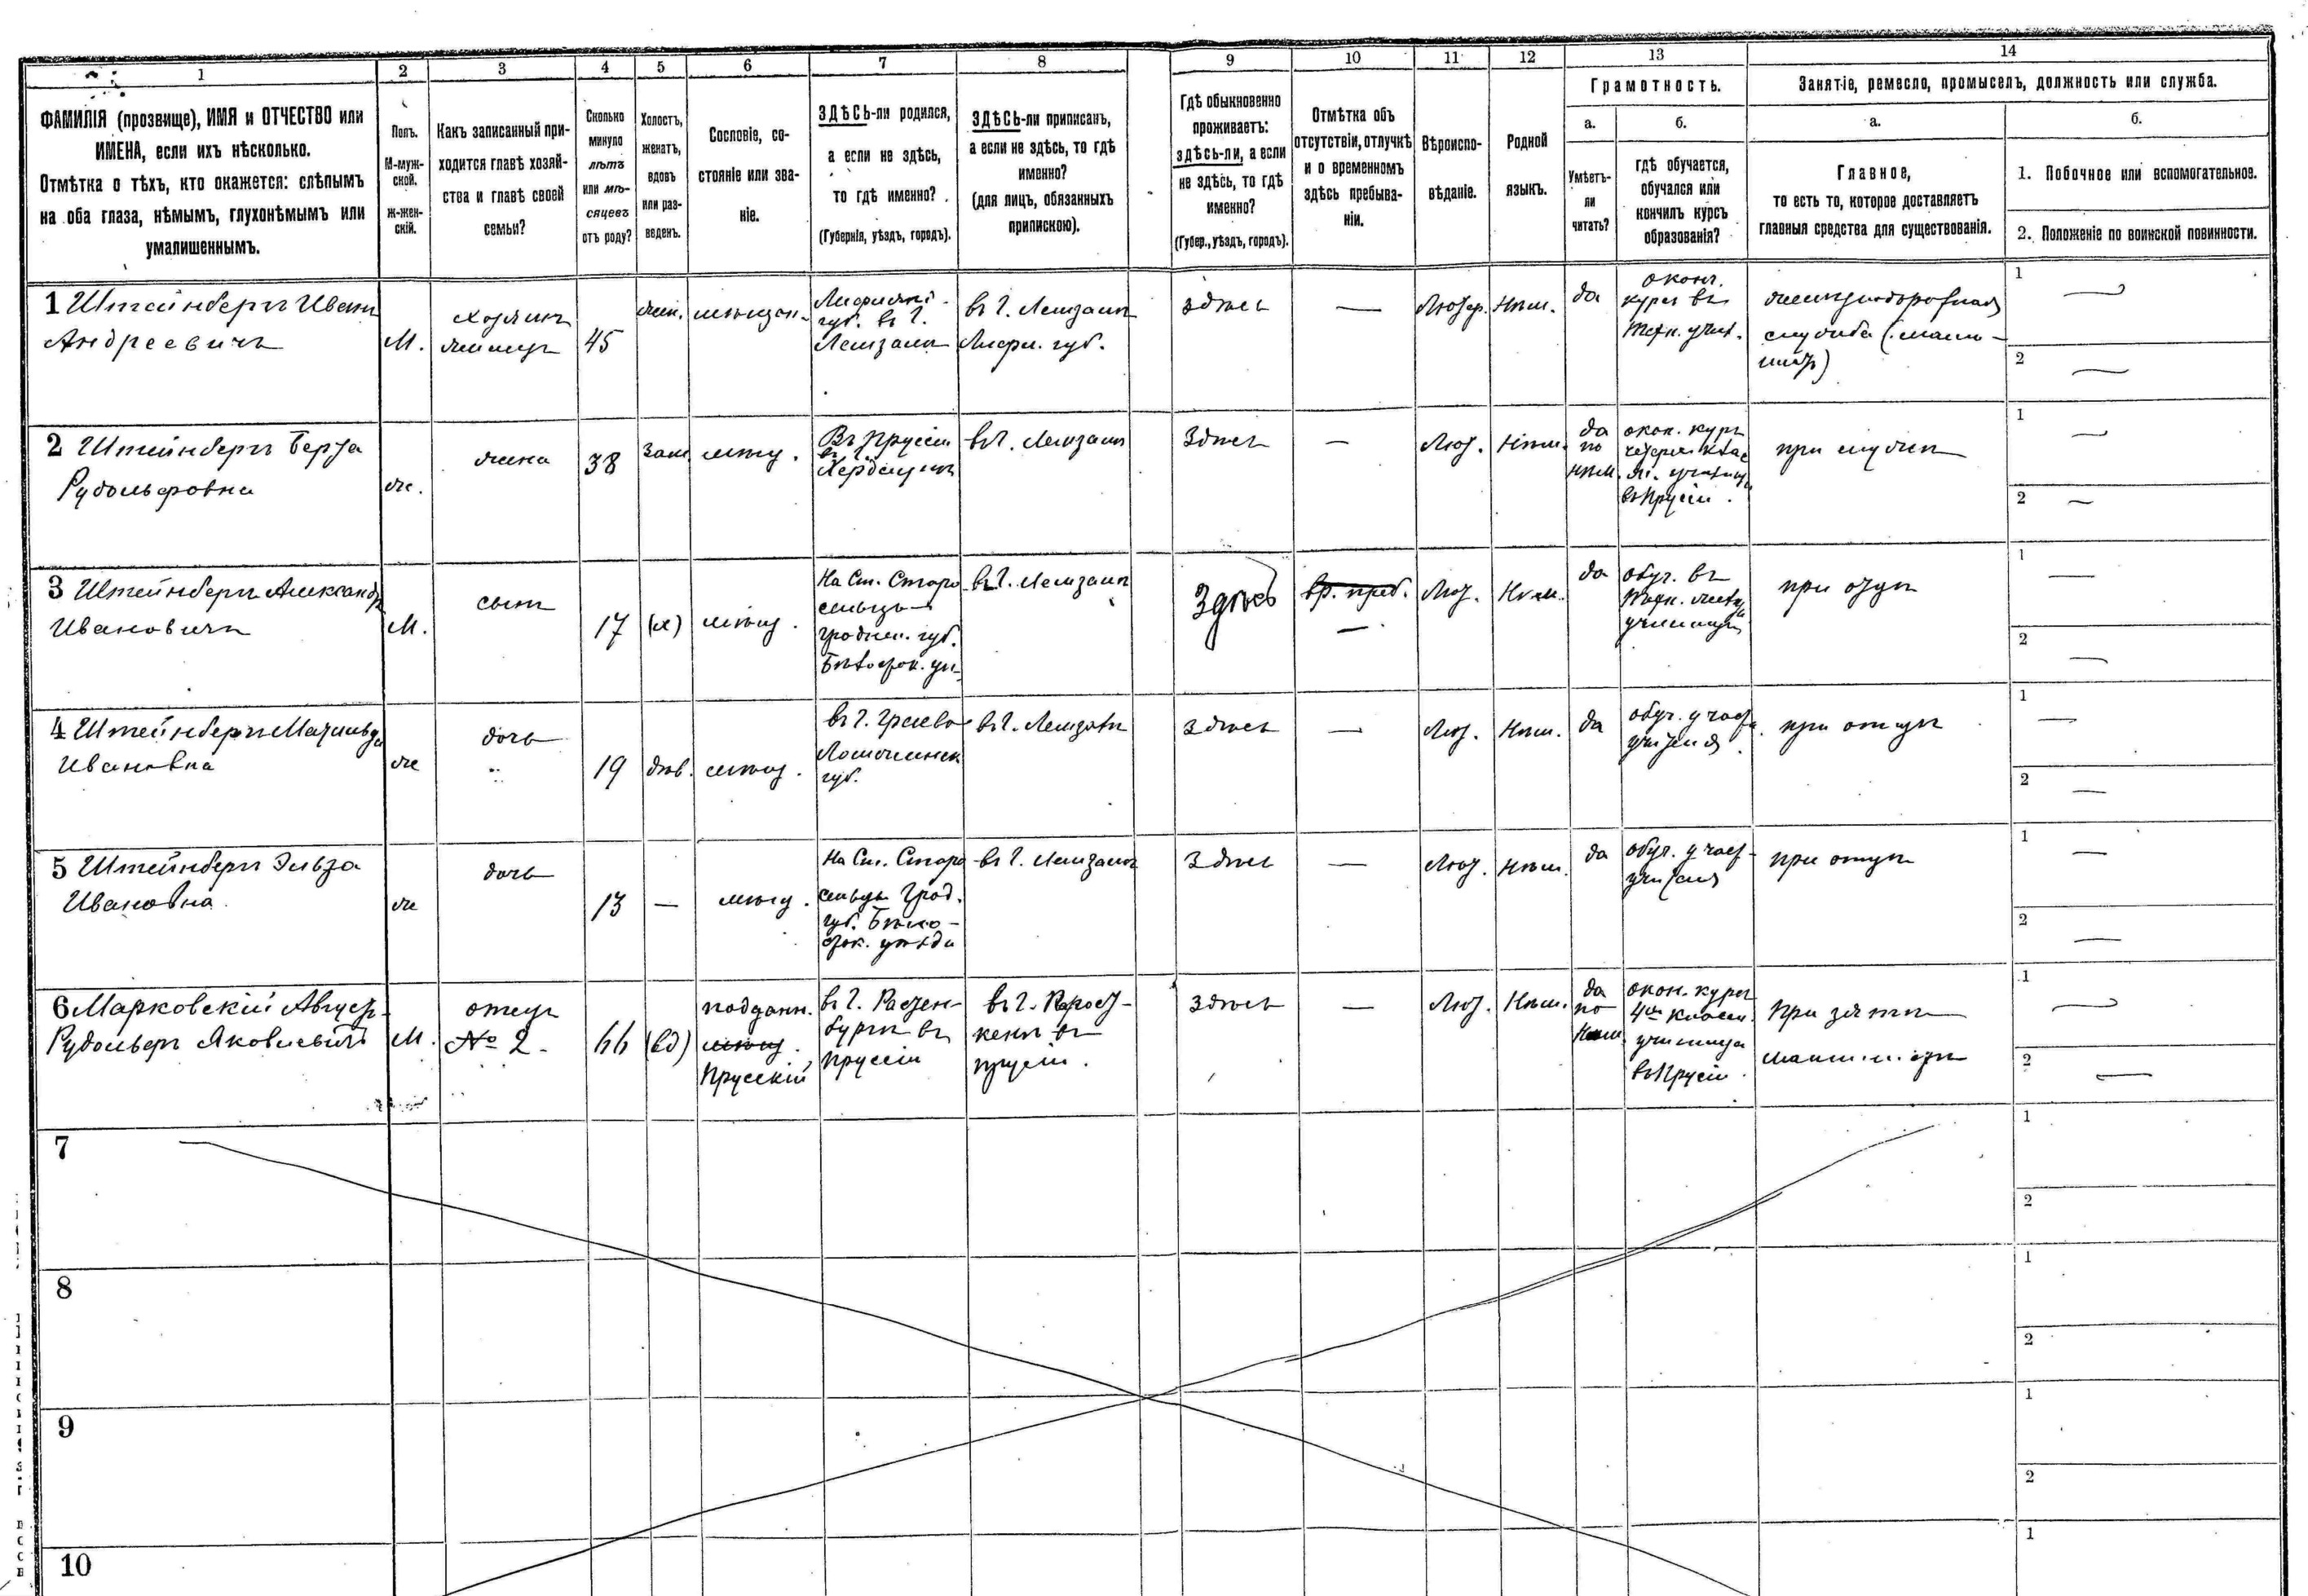 1 2 3 4 5 6 7 8 9 10 11 12 13 14
ФАМИЛІЯ (прозвище), ИМЯ и ОТЧЕСТВО или
ИМЕНА, если ихъ нѣсколько.
Отмѣтка о тѣхъ, кто окажется: слѣпымъ
на оба глаза, нѣмымъ, глухонѣмымъ или
умалишеннымъ.
Полъ.
М-муж-
ской.
Ж-жен-
скій.
Какъ записанный при-
ходится главѣ хозяй-
ства и главѣ своей
семьи?
Сколько
минуло
лѣтъ
или мѣ-
сяцевъ
отъ роду?
Холостъ,
женатъ,
вдовъ
или раз-
веденъ.
Сословіе, со-
стояніе или зва-
ніе.
ЗДѢСЬ-ли родился,
а если не здѣсь,
то гдѣ именно?
(Губернія, уѣздъ, городъ).
ЗДѢСЬ-ли приписанъ,
а если не здѣсь, то гдѣ
именно?
(для лицъ, обязанныхъ
припискою).
Гдѣ обыкновенно
проживаетъ:
здѣсь-ли, а если
не здѣсь, то гдѣ
именно?
(Губер., уѣздъ, городъ).
Отмѣтка объ
отсутствіи, отлучкѣ
и о временномъ
здѣсь пребыва-
ніи.
Вѣроиспо-
вѣданіе.
Родной
языкъ.
Грамотность.
а.
Умѣетъ-
ли
читать?
б.
гдѣ обучается,
обучался или
кончилъ курсъ
образованія?
Занятіе, ремесло, промыселъ, должность или служба.
а.
Главное,
то есть то, которое доставляетъ
главныя средства для существованія.
б.
1. Побочное или вспомогательное.
2. Положеніе по воинской повинности.
1 Штейнбергъ Иванъ
Андреевичъ
М.
хозяинъ
45
жен.
губ. въ г.
Лемзалъ
въ г. Лемзалъ
губ.
здѣсь
—
Лютер.
Нѣм.
да
оконч.
курсъ въ
Техн. учил.
желѣзнодорожная
служба (маши-
нистъ)
1 —
2 —
2 Штейнбергъ Берта
Рудольфовна
ж.
жена
38
Зам.
мѣщ.
Въ Пруссіи
въ г. Лемзалъ
Здѣсь
—
Лют.
Нѣм.
да
по
нѣм.
окон. курсъ
въ Пруссіи.
при мужѣ
1 —
2 —
3 Штейнбергъ Александръ
Ивановичъ
М.
сынъ
17
(х)
мѣщ.
На ст. Старо
сельцы
Гродн. губ.
Бѣлосток. уѣ.
въ г. Лемзалъ
Здѣсь
вр. преб.
—
Лют.
Нѣм.
да
обуч. въ
училищѣ
при отцѣ
1 —
2 —
4 Штейнбергъ Матильда
Ивановна
ж
дочь
19
дѣв.
мѣщ.
въ г. Граево
Ломжинск
губ.
въ г. Лемзалъ
Здѣсь
—
Лют.
Нѣм.
да
обуч. у част.
учителя.
при отцѣ
1 —
2 —
5 Штейнбергъ Эльза
Ивановна
ж
дочь
13
—
мѣщ.
На ст. Старо
сельцы Грод.
губ. Бѣло-
сток. уѣзда
въ г. Лемзалъ
Здѣсь
—
Лют.
Нѣм.
да
обуч. у част-
учителя
при отцѣ
1 —
2 —
6 Марковскій Августъ-
Рудольфъ Яковлевичъ
М.
отецъ
№ 2.
66
(вд)
подданн.
мѣщ.
Прусскій
въ г. Растен-
бургъ въ
Пруссіи
въ г.
въ
Пруссіи.
здѣсь
—
Лют.
Нѣм.
да
по
Нѣм.
окон. курсъ
4хъ класс.
училища
въ Пруссіи.
при зятѣ
машинистѣ
1 —
2 —
7
1
2
8
1
2
9
1
2
10
1